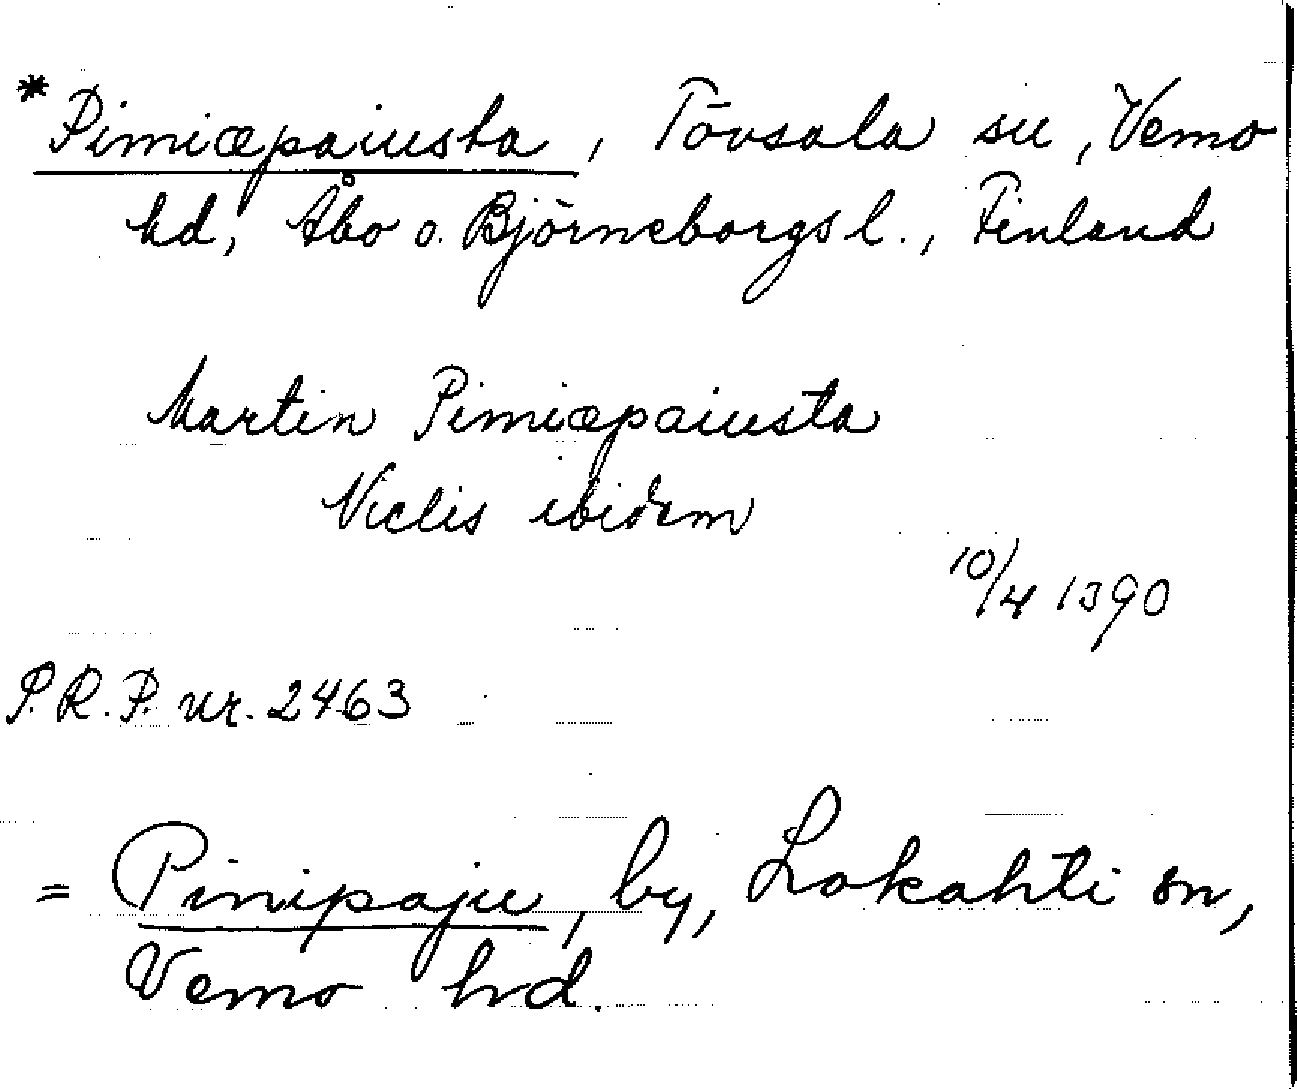 * Pimiæpaiusta, Tövsala sn, Vemo
hd, Åbo o. Björneborgs l., Finland
Martin Pimiæpaiusta
Niclis ibidem
10/4 1390
P.R.P. nr. 2463
= Pinipaju, by, Lokahti sn,
Vemo hd.